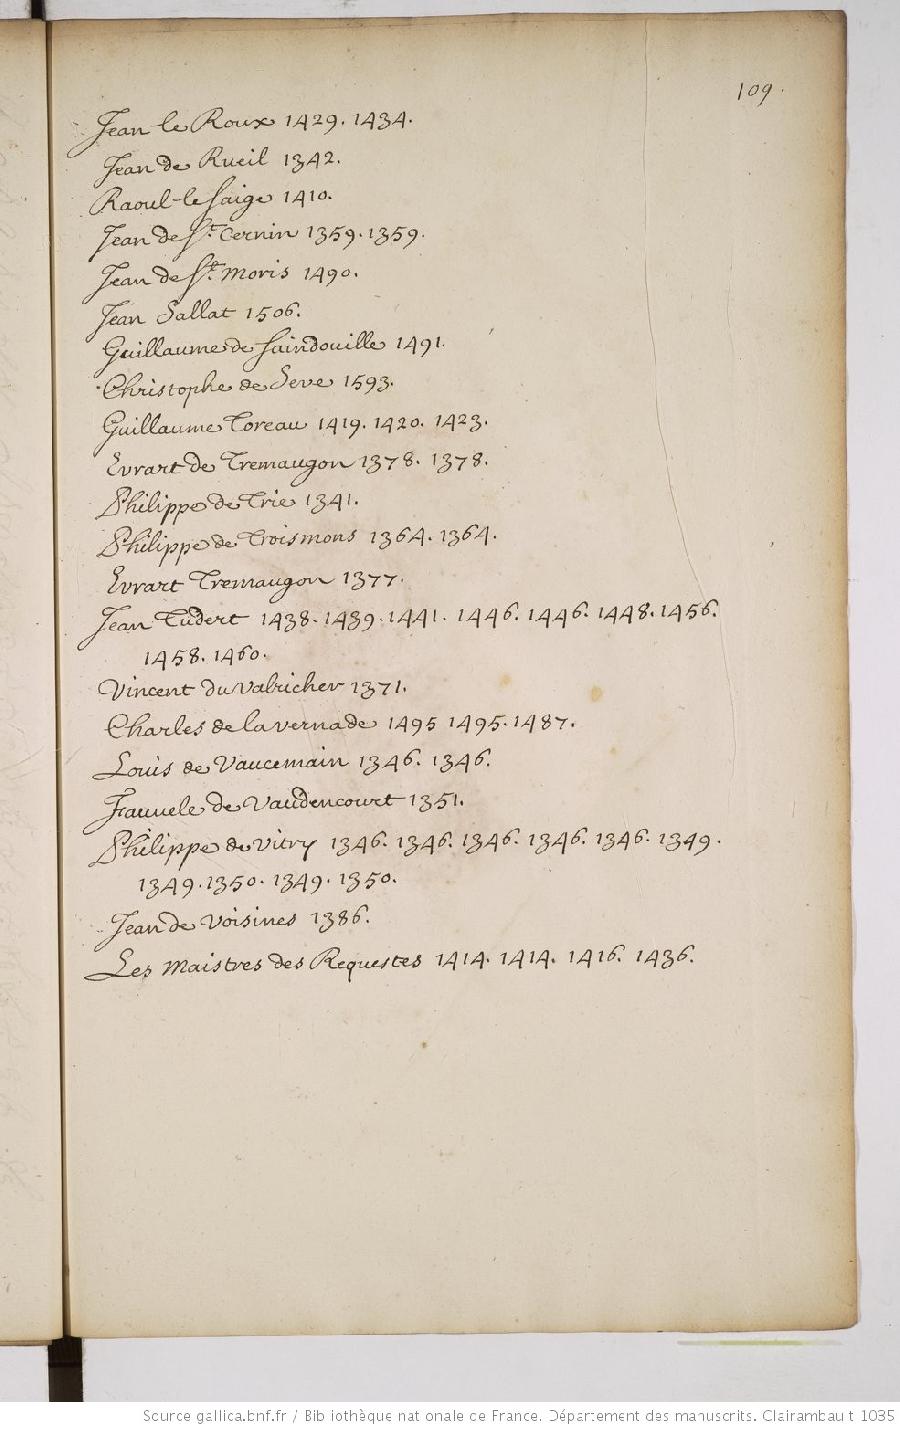 109.
Jean le Roux 1429. 1434.
Jean de Rueil 1342.
Raoul-le Saige 1410.
Jean de St. Cernin 1359. 1359.
Jean de St. Moris 1490.
Jean Sallat 1506.
Guillaume de Saindouille 1491.
Christophe de Seve 1593.
Guillaume Toreau 1419. 1420. 1423.
Evrart de Tremaugon 1378. 1378.
Philippe de Trie 1341.
Philippe de Troismons 1364. 1364.
Evrart Tremaugon 1377.
Jean Tudert 1438. 1439. 1441. 1446. 1446. 1448. 1456.
1458. 1460.
Vincent du Valricher 1371.
Charles de la vernade 1495 1495. 1487.
Louis de Vaucemain 1346. 1346.
Fauvele de Vaudencourt 1351.
Philippe de Vitry 1346. 1346. 1346. 1346. 1346. 1349.
1349. 1350. 1349. 1350.
Jean de Voisines 1386.
Les Maistres des Requestes 1414. 1414. 1416. 1436.
Source gallica.bnf.fr / Bibliothèque nationale de France. Département des manuscrits. Clairambault 1035